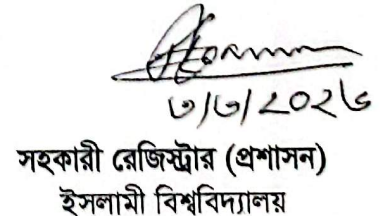 ৩/৩/২০২৬
সহকারী রেজিস্ট্রার (প্রশাসন)
ইসলামী বিশ্ববিদ্যালয়